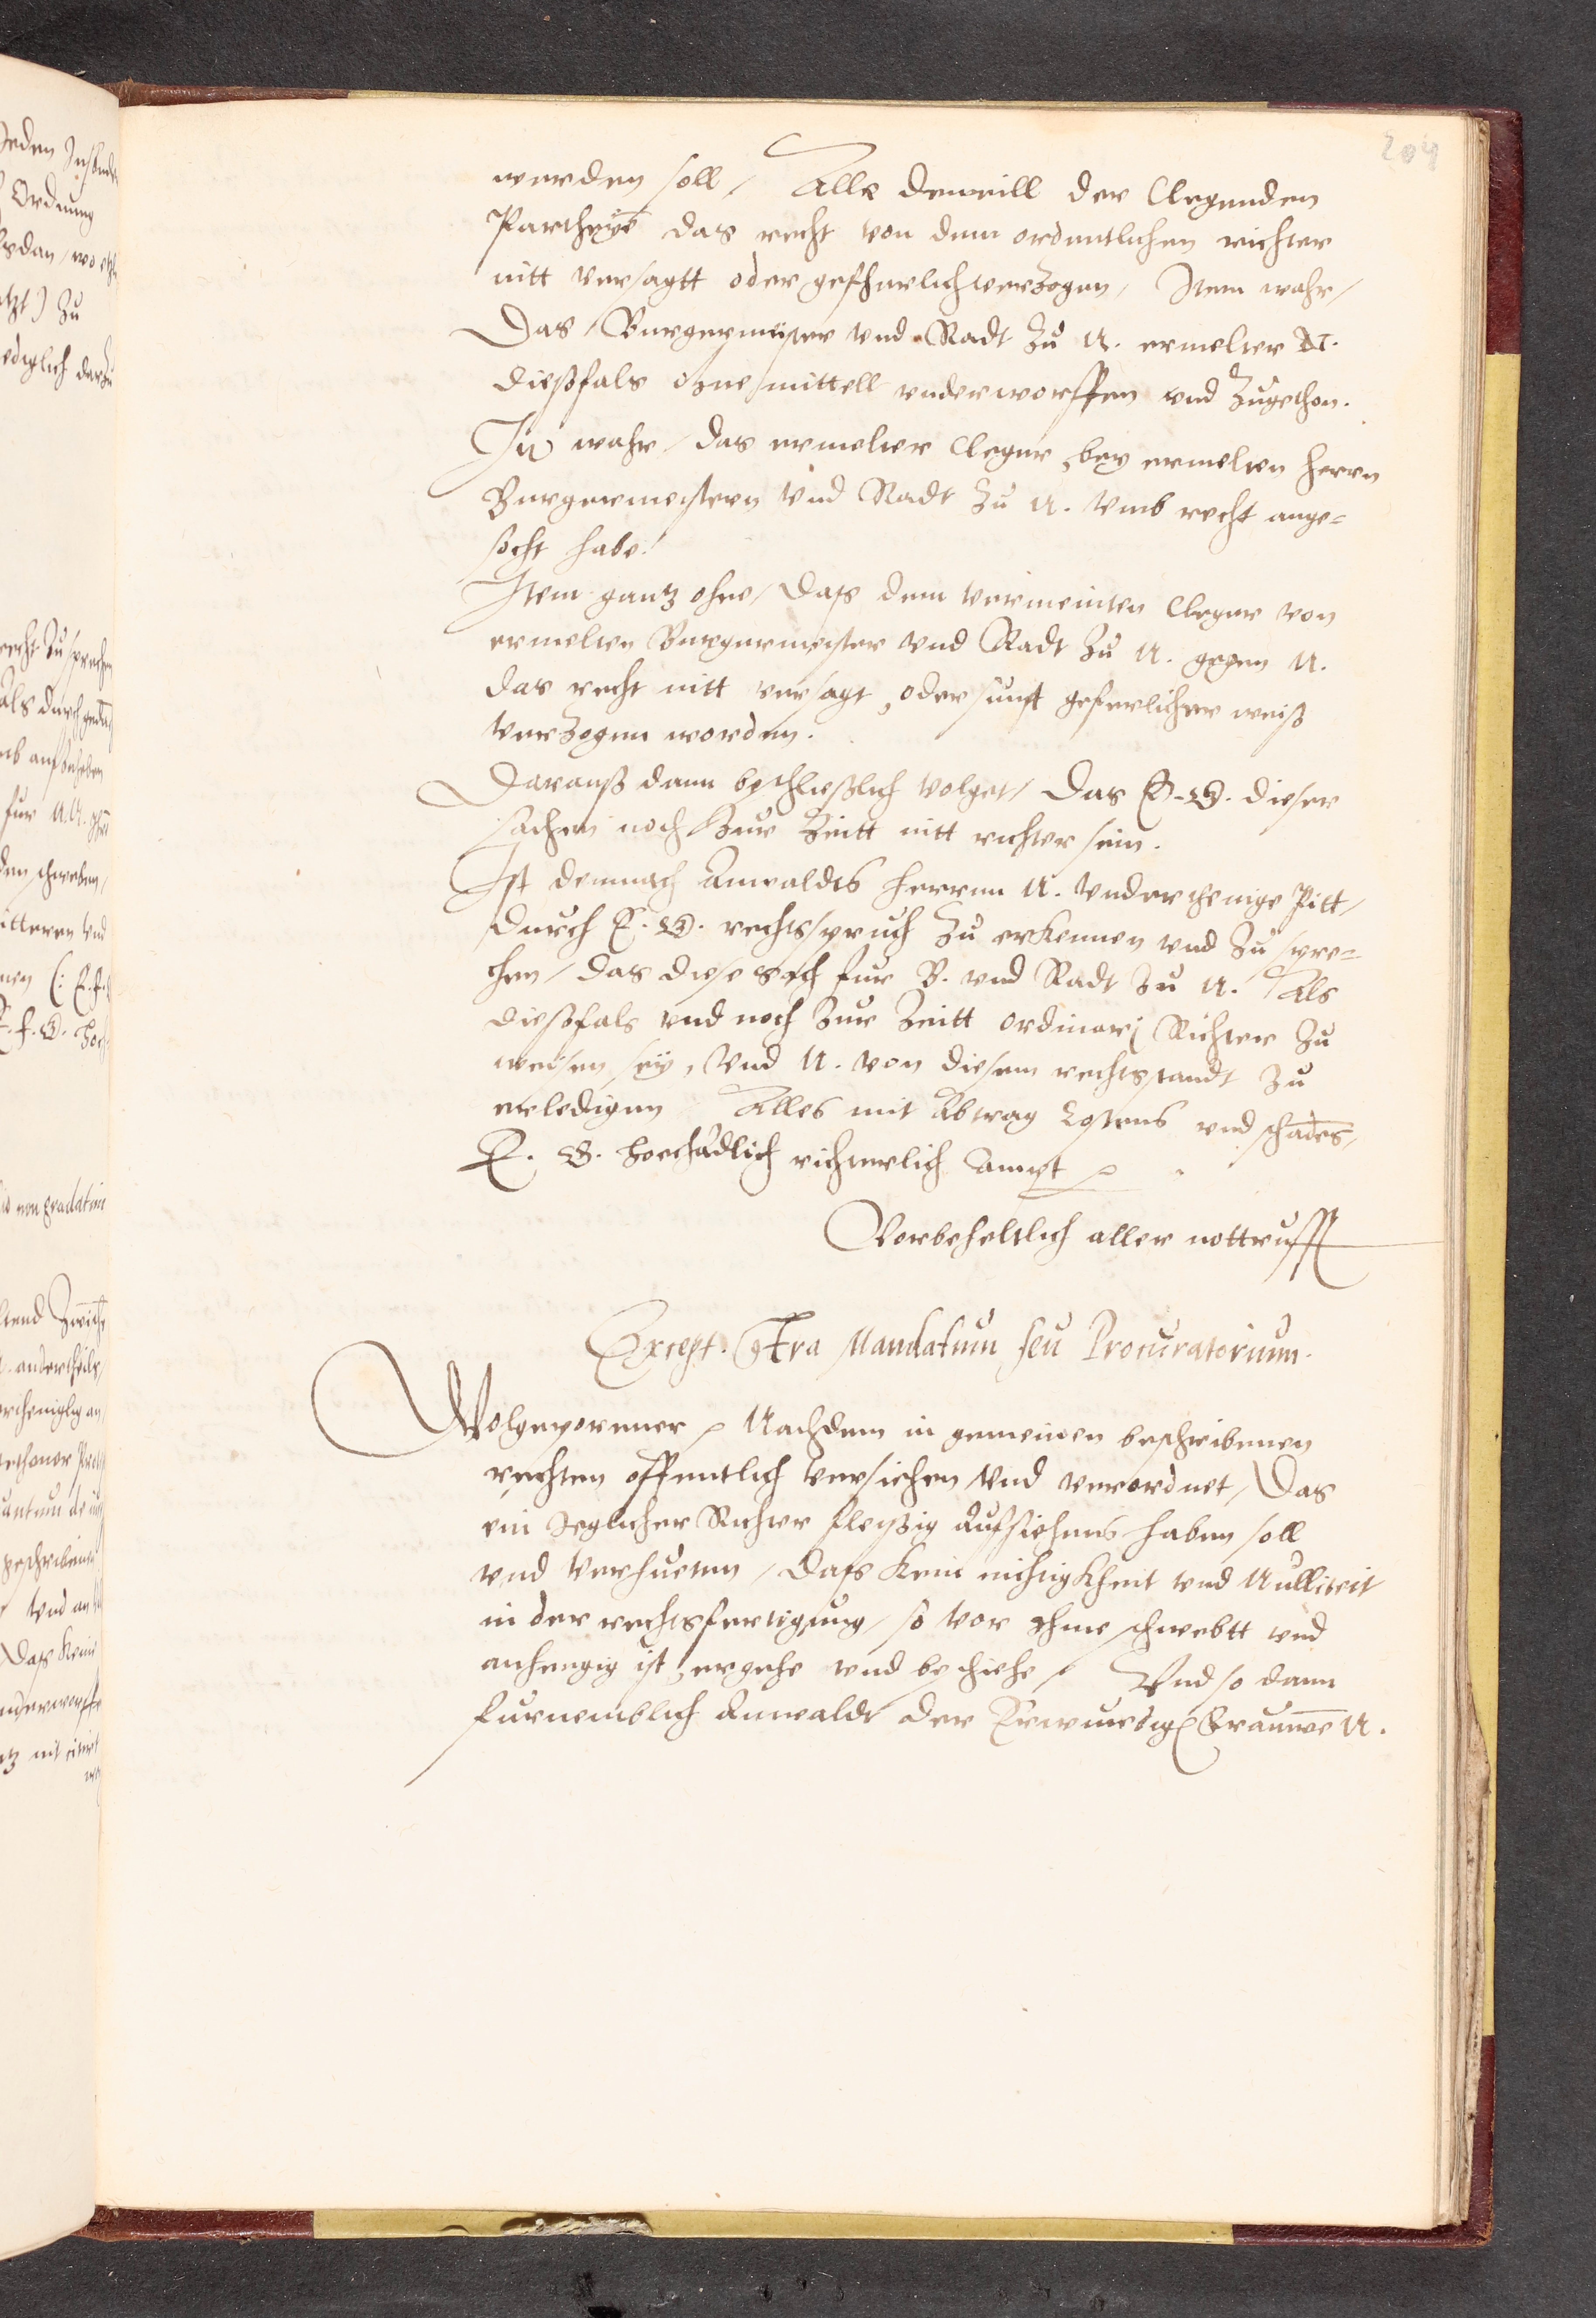 204
werden soll, Alle deweill der Clegenden
Partheyē das recht von dem ordentlichen richter
nitt versagtt oder gefherlich verzogen, Item wahr,
Das Burgermeister vnd Radt zu N. ermelter N.
dießfals ohne mittell vnderworffen vnd zugethon.
Itē wahr, das ermelter Cleger, bey ermelten herrn
Burgermeistern vnd Radt zu N. vmb recht ange=
socht habe.
Item gantz ohne, das dem vermeinten Cleger von
ermelten Burgermeister vnd Radt zu N. gegen N.
das recht nitt versagt, oder sunst geferlicher weiß
verzogen worden.
Darauß dann beschließlich volget, Das E. G. dieser
sachen noch zur Zeitt nitt richter sein.
Ist demnach Anwaldts herrnn N. vnderthenige Pitt,
durch E. G. rechtsspruch zu erkennen vnd zu spre=
chen, das diese sach fur B. vnd Radt zu N. Als
dießfals vnd noch zur Zeitt ordinarj Richter zu
weisen sey, vnd N. von diesem rechtsstandt zu
erledigen Alles mit Abtrag Costens vnd schadēs,
E. G. hochadlich richterlich Ampt
Vorbeheltlich aller nottrufft
Except. Cōtra Mandatum seu Procuratorium.
Wolgeporenner Nachdem in gemeinen beschribenen
rechten offentlich versehen vnd verordnet, Das
ein Jeglicher Richter fleyßig aufsiehens haben soll
vnd verhueten, das kein nichtigkheit vnd Nulliteit
in der rechtsfertigung, so vor ihme schwebtt vnd
anhengig ist, ergehe vnd beschehe, Vnd so dann
furnemblich Anwaldt der Erwurdigē Frauwē N.